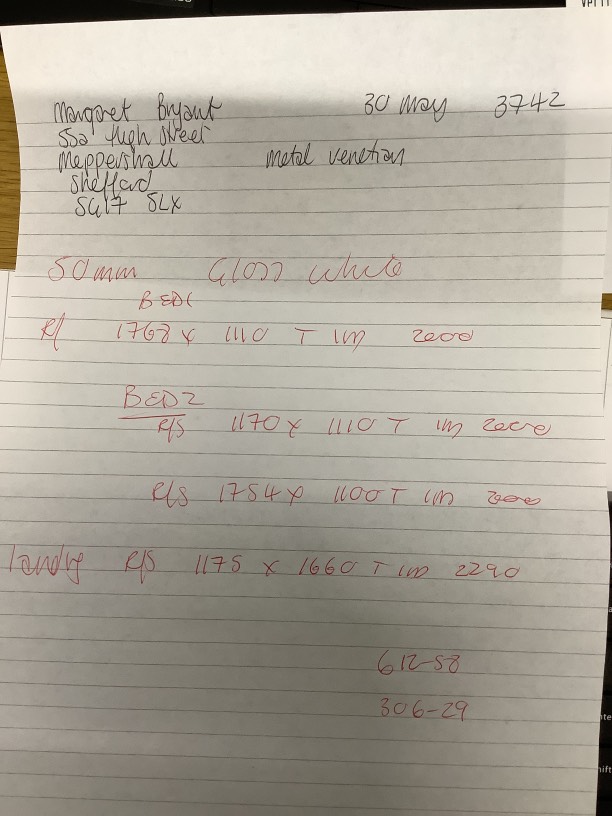 Margaret Bryant 30 May 3742
55a High Street
Meppershall metal venetian
Shefford
SG17 5LX
50mm Gloss White
BED1
R/ 1768 x 1110 T 1m 2000
BED2
R/S 1170 x 1110 T 1m 2000
R/S 1754 x 1100 T 1m 2000
landing R/S 1175 x 1660 T 1m 2290
612-58
306-29